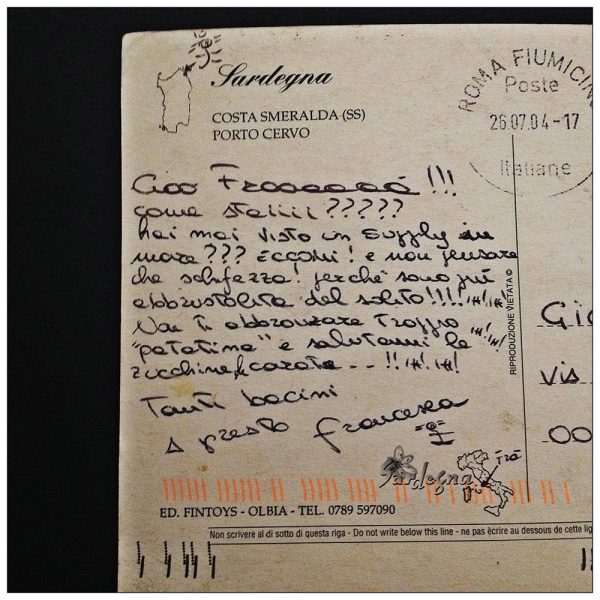 Sardegna
COSTA SMERALDA (SS)
PORTO CERVO
ROMA FIUMICINO
Poste
26.07.04-17
Italiane
Ciao Fraaaaaa!!!
come staiiii?????
hai mai visto un supplì in
mare??? ECCOMI! e non pensare
che schifezza! perchè sono più
abbrustolita del solito!!!! ih! ih!
Non ti abbronzare troppo ih! ih!
"patatina" e salutami le
zucchine, carote... !! ih! ih!
Tanti bacini
A presto Francesca
Gio
Vis
00
RIPRODUZIONE VIETATA ©
Sardegna
FRÀ
ED. FINTOYS - OLBIA - TEL. 0789 597090
Non scrivere al di sotto di questa riga - Do not write below this line - ne pas ècrire au dessous de cette lig